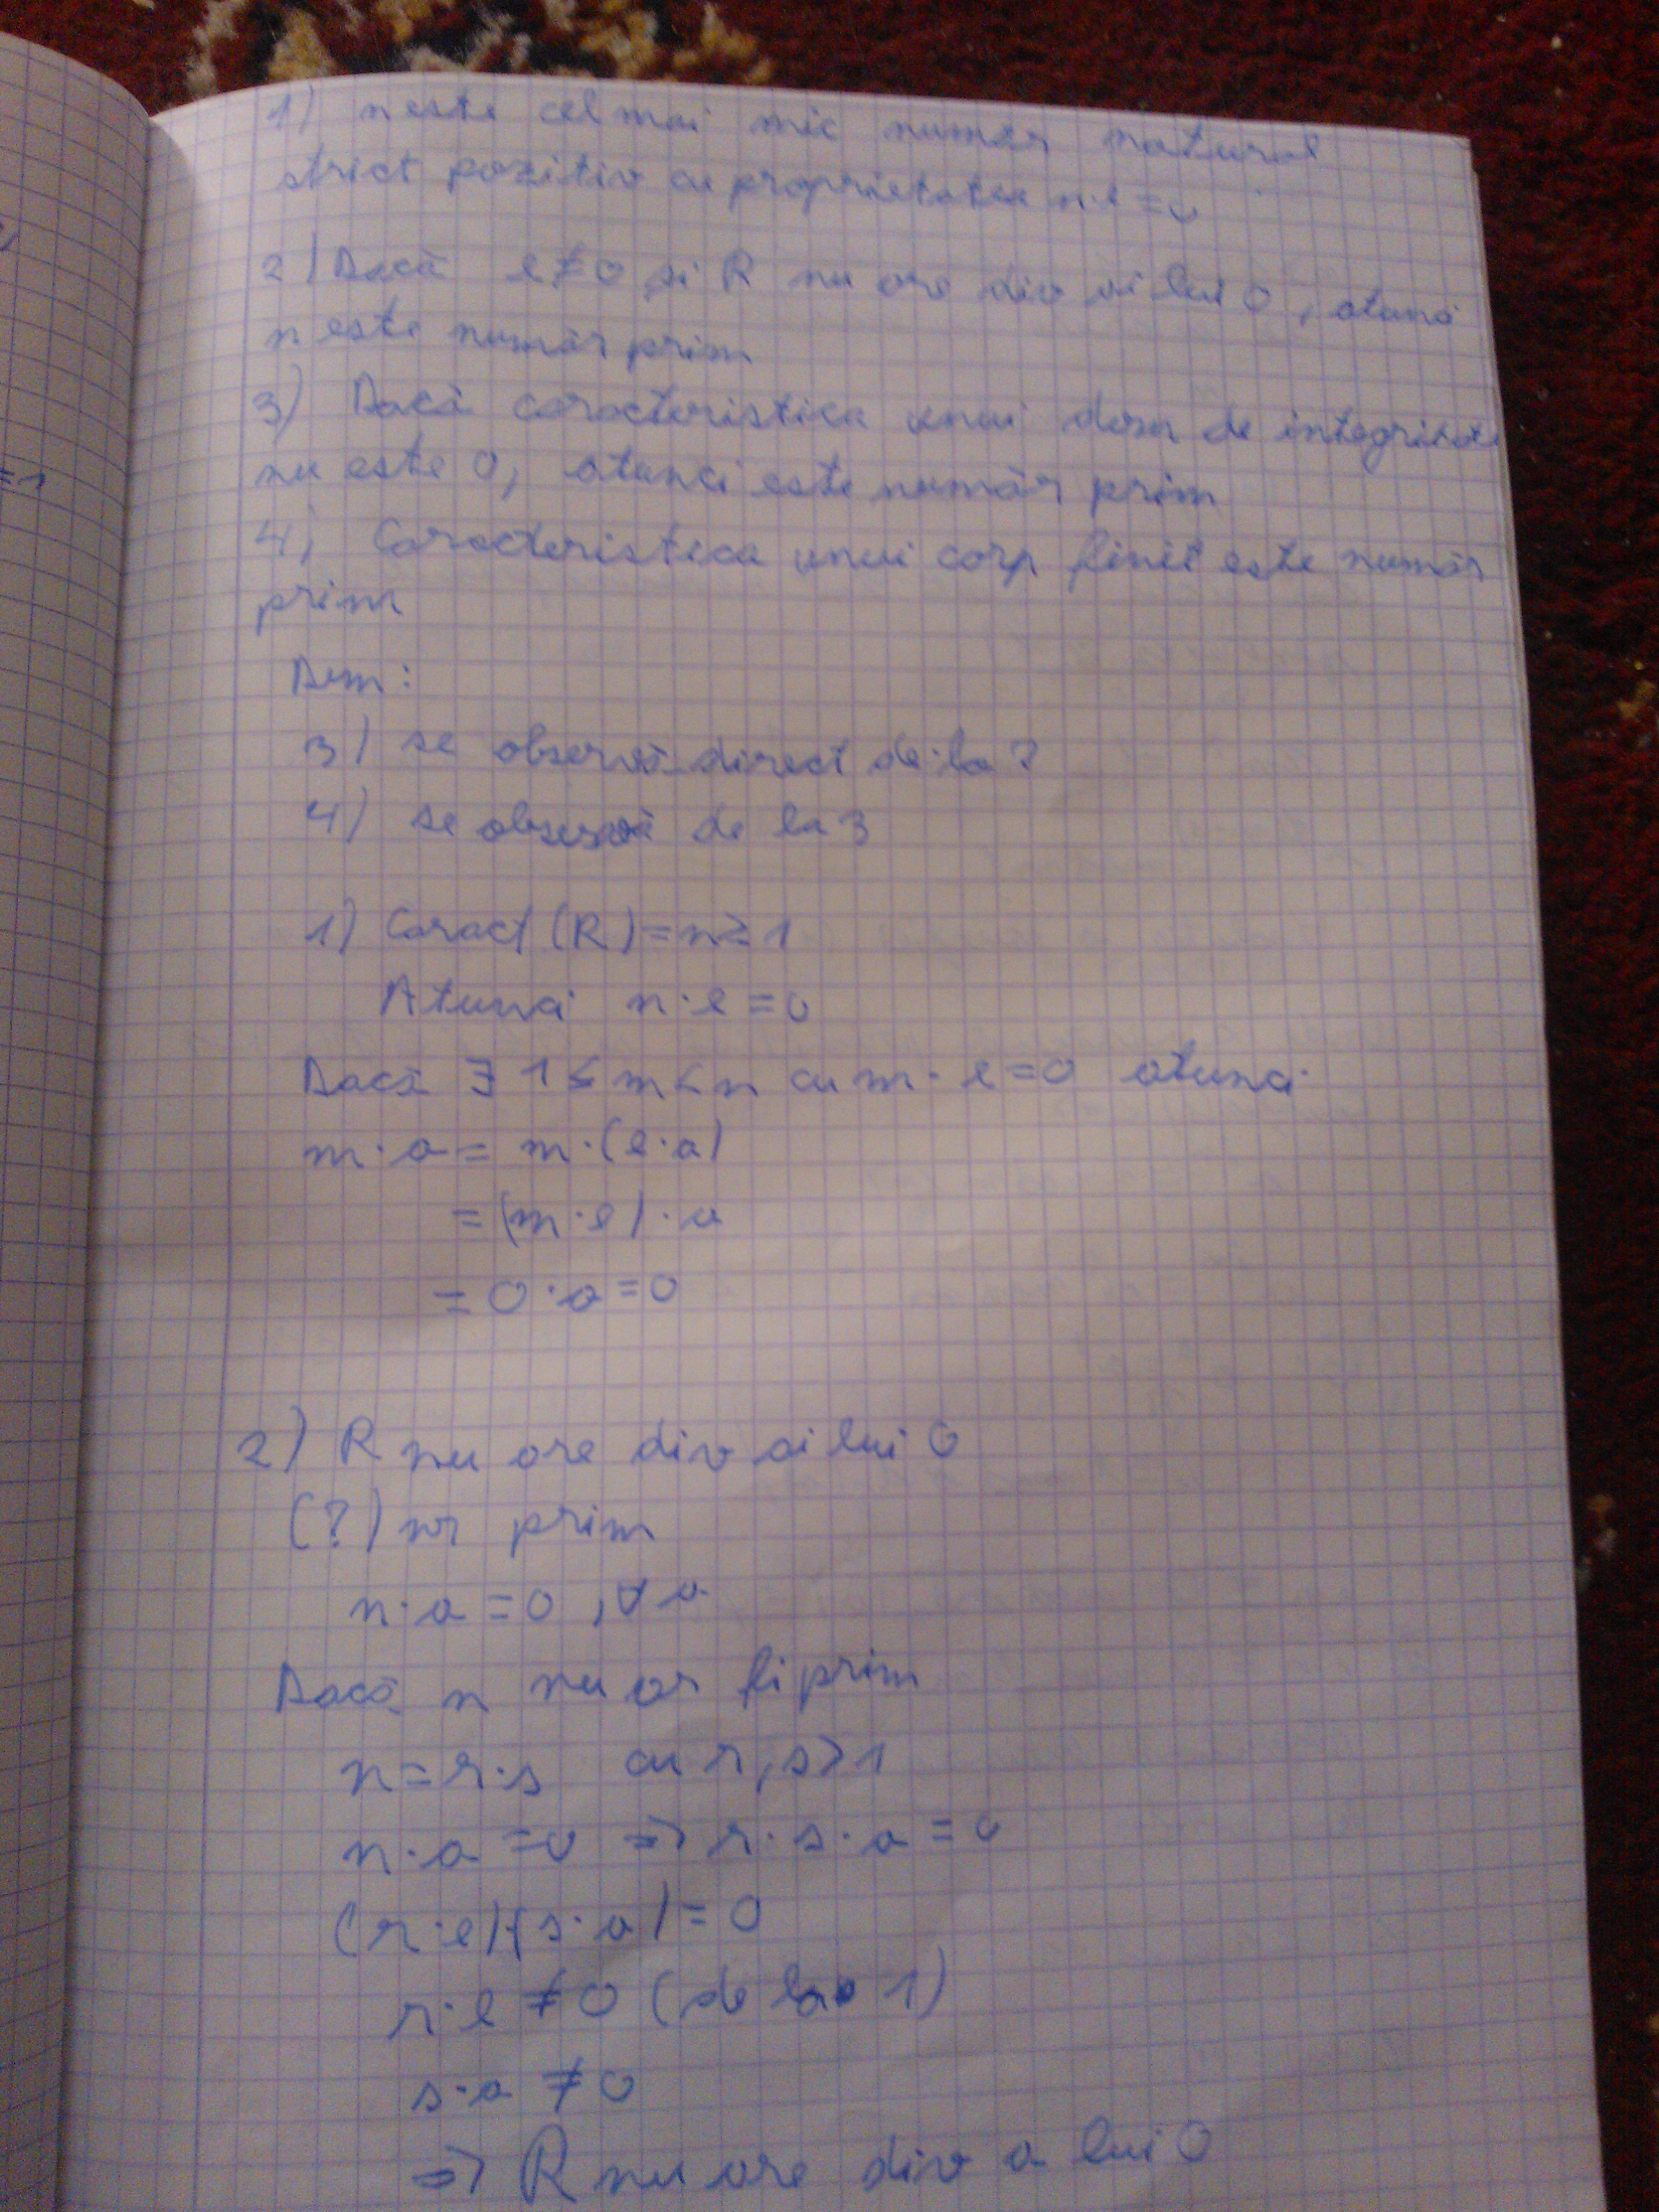 1) n este cel mai mic numar natural
strict pozitiv cu proprietatea n·e = 0
=1
2) Dacă e≠0 și R nu are div ai lui 0, atunci
n este număr prim
3) Dacă caracteristica unui dom de integritate
nu este 0, atunci este număr prim
4) Caracteristica unui corp finit este număr
prim
Dem:
3) se observă direct de la 2
4) se observă de la 3
1) Caract (R) = n ≥ 1
Atunci n·e = 0
Dacă ∃ 1 ≤ m < n cu m·e = 0 atunci
m·a = m·(e·a)
= (m·e)·a
= 0·a = 0
2) R nu are div ai lui 0
(?) nr prim
n·a = 0, ∀ a
Dacă n nu ar fi prim
n = r·s cu r, s > 1
n·a = 0 => r·s·a = 0
(r·e)·(s·a) = 0
r·e ≠ 0 (de la 1)
s·a ≠ 0
=> R nu are div a lui 0